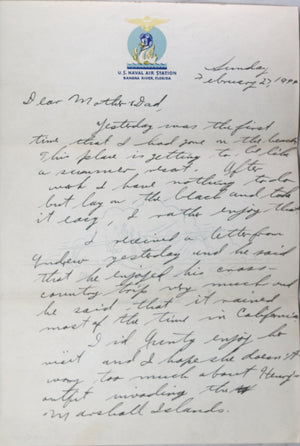 U.S. NAVAL AIR STATION
BANANA RIVER, FLORIDA
Sunday
February 27, 1944
Dear Mother & Dad,
Yesterday was the first
time that I had gone in the
This place is getting to be like
a summer resort. After
work I have nothing to do
but lay on the beach and take
it easy, I rather enjoy that
I received a letter from
Andrew yesterday and he said
that he enjoyed his cross-
country trip very much and
he said that it rained
most of the time in California
I did enjoy his
visit and I hope she doesn't
worry too much about Henry's
outfit invading the
Marshall Islands.